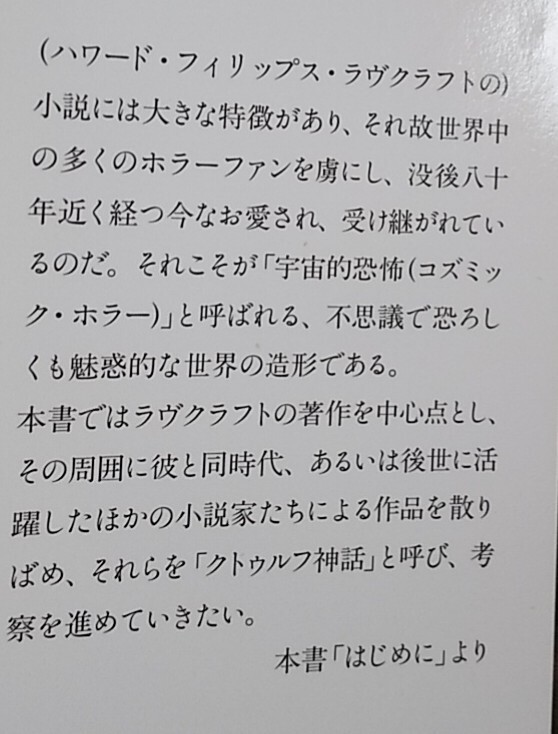 (ハワード・フィリップス・ラヴクラフトの)
小説には大きな特徴があり、それ故世界中
の多くのホラーファンを虜にし、没後八十
年近く経つ今なお愛され、受け継がれてい
るのだ。それこそが「宇宙的恐怖(コズミッ
ク・ホラー)」と呼ばれる、不思議で恐ろし
くも魅惑的な世界の造形である。
本書ではラヴクラフトの著作を中心点とし、
その周囲に彼と同時代、あるいは後世に活
躍したほかの小説家たちによる作品を散り
ばめ、それらを「クトゥルフ神話」と呼び、考
察を進めていきたい。
本書「はじめに」より